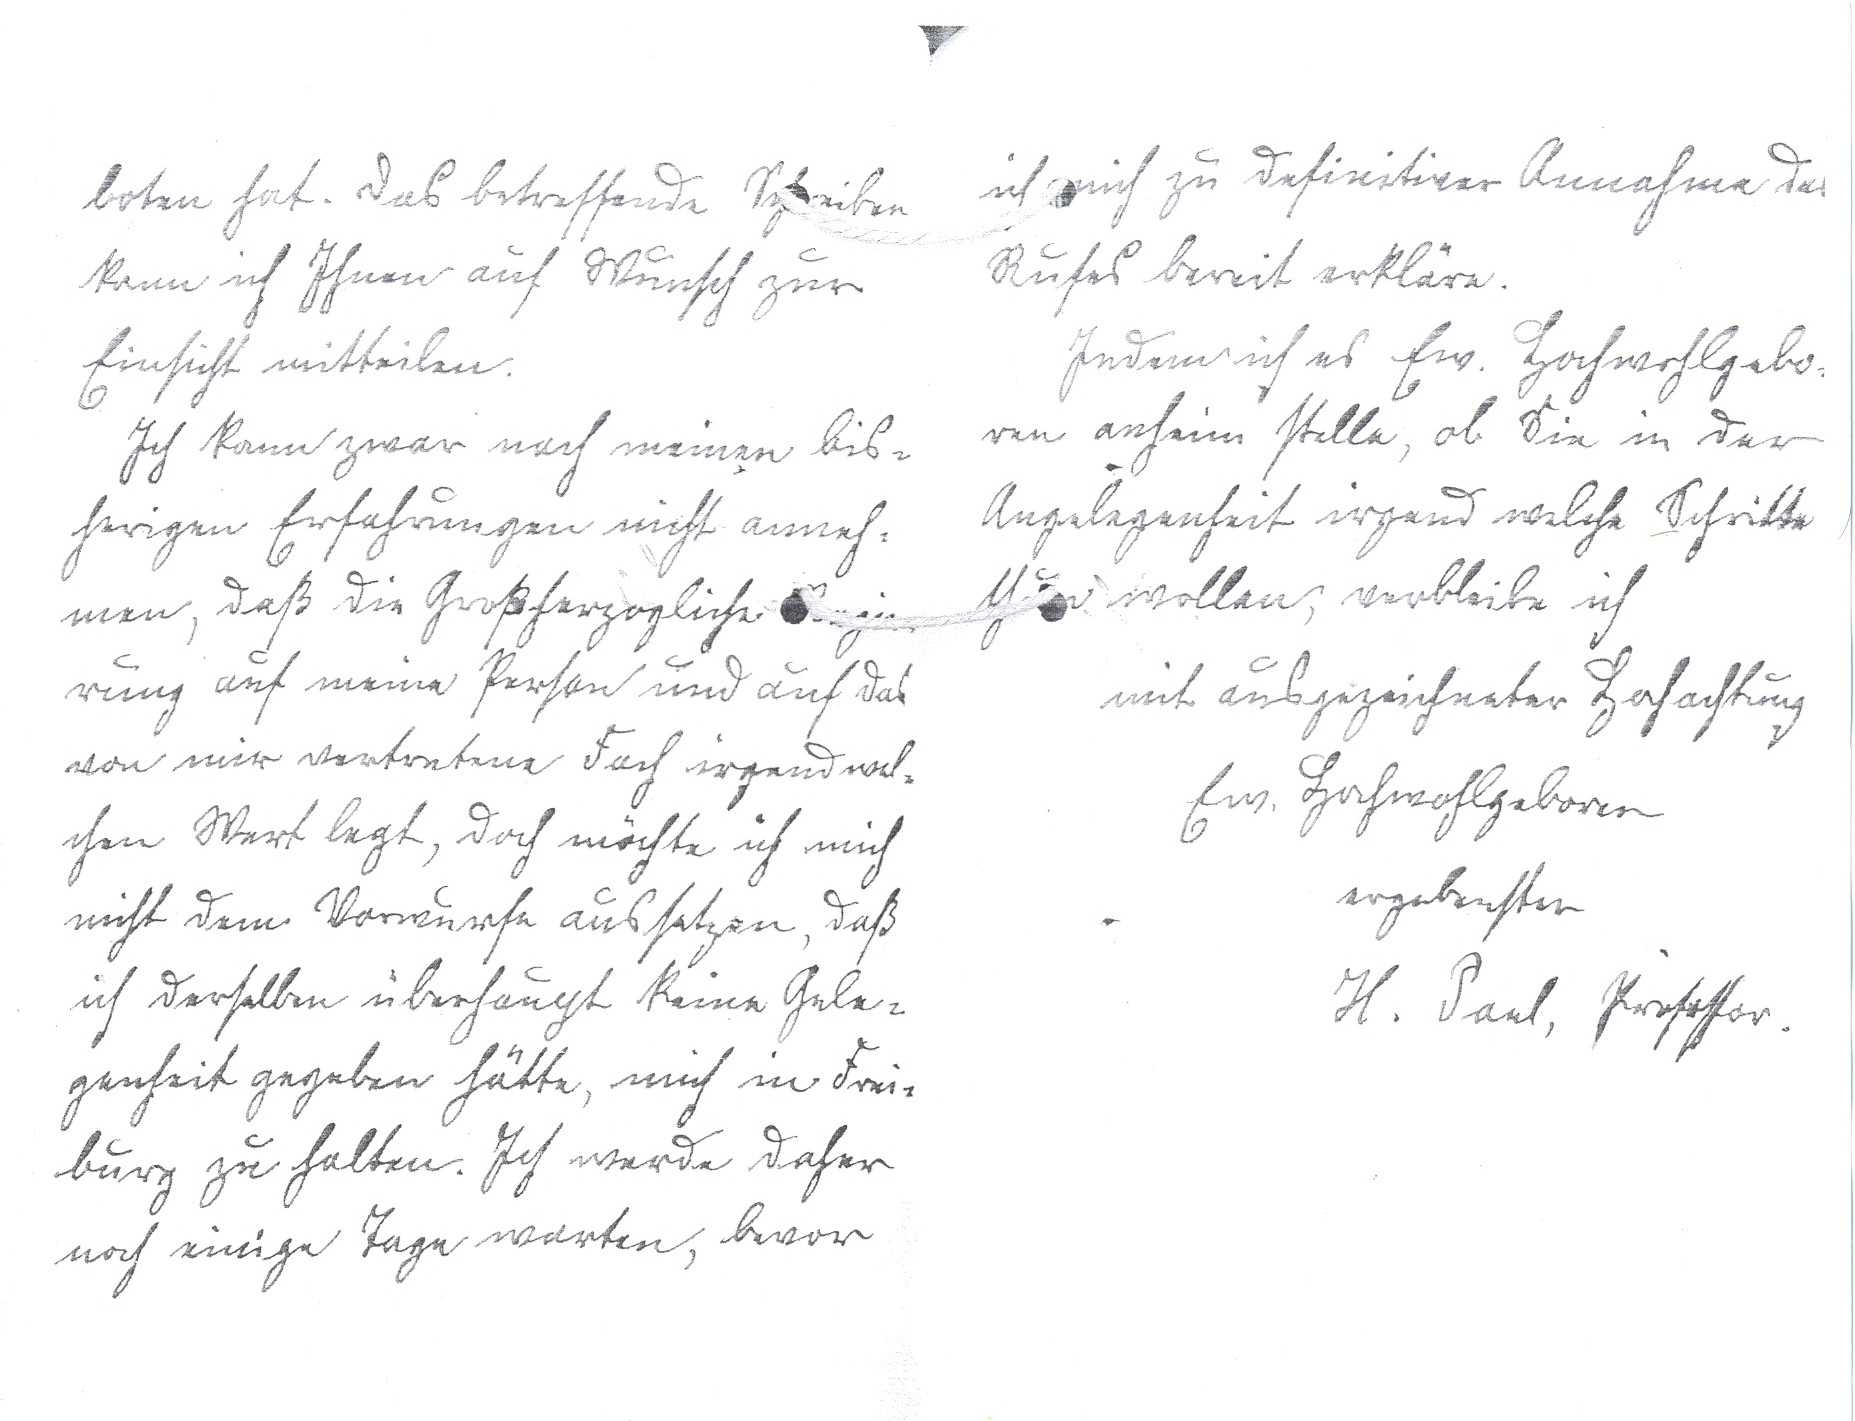 boten hat. Das betreffende Schreiben
kann ich Ihnen auf Wunsch zur
Einsicht mitteilen.
Ich kann zwar nach meinen bis-
herigen Erfahrungen nicht anneh-
men, daß die Großherzogliche Regie-
rung auf meine Person und auf das
von mir vertretene Fach irgendwel-
chen Wert legt, doch möchte ich mich
nicht dem Vorwurfe aussetzen, daß
ich derselben überhaupt keine Gele-
genheit gegeben hätte, mich in Frei-
burg zu halten. Ich werde daher
noch einige Tage warten, bevor
ich mich zu definitiver Annahme des
Rufes bereit erkläre.
Indem ich es Ew. Hochwohlgebo-
ren anheim stelle, ob Sie in der
Angelegenheit irgend welche Schritte
thun wollen, verbleibe ich
mit ausgezeichneter Hochachtung
Ew. Hochwohlgeboren
ergebenster
H. Paul, Professor.